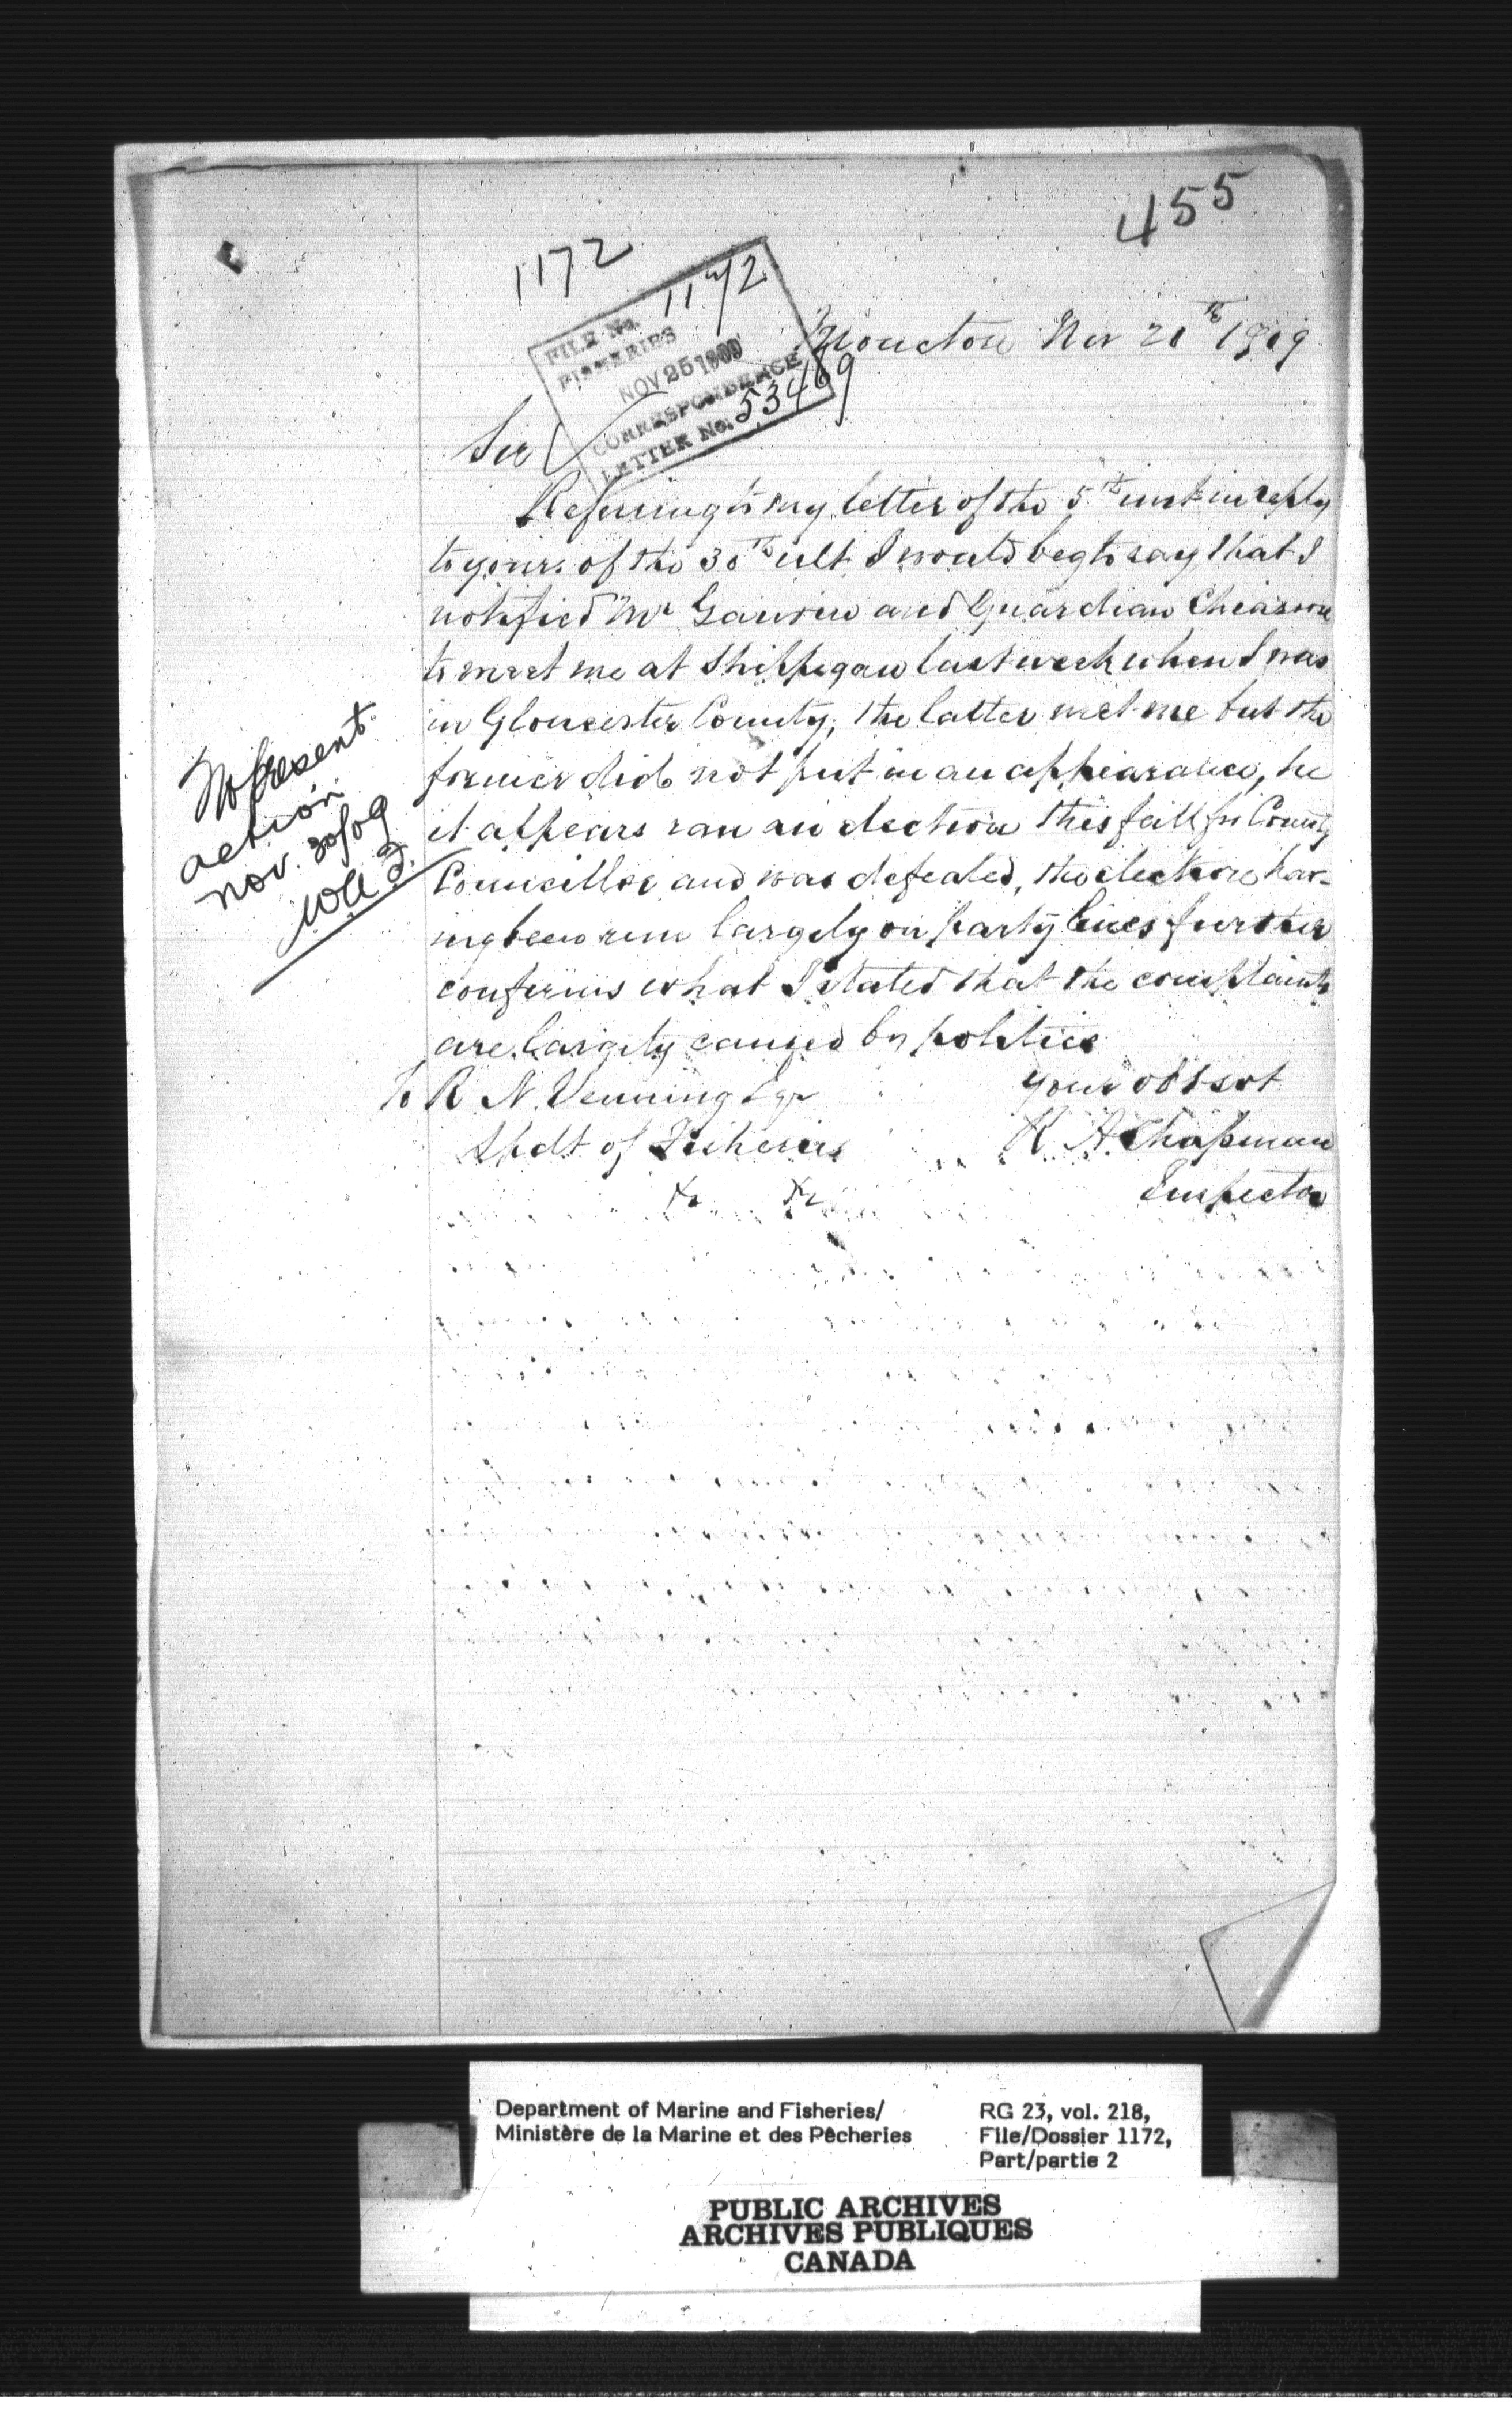 455
1172
FILE No. 1172
FISHERIES
NOV 25 1909
CORRESPONDENCE
LETTER No. 53469
Moncton Nov 20th 1909
Sir
Referring to my letter of the 5th inst in reply
to yours of the 30th ult I would beg to say that I
notified Mr Gauvin and Guardian Chiasson
to meet me at Shippegan last week when I was
in Gloucester County, the latter met me but the
former did not put in an appearance, he
it appears ran an election this fall for County
Councillor and was defeated, the election hav-
ing been run largely on party lines further
confirms what I stated that the complaints
are largely caused by politics
your obt svt
R A Chapman
Inspector
To R N. Venning Esqr
Supdt of Fisheries
No present
action
Nov. 30/09
Department of Marine and Fisheries/
Ministère de la Marine et des Pêcheries
RG 23, vol. 218,
File/Dossier 1172,
Part/partie 2
PUBLIC ARCHIVES
ARCHIVES PUBLIQUES
CANADA